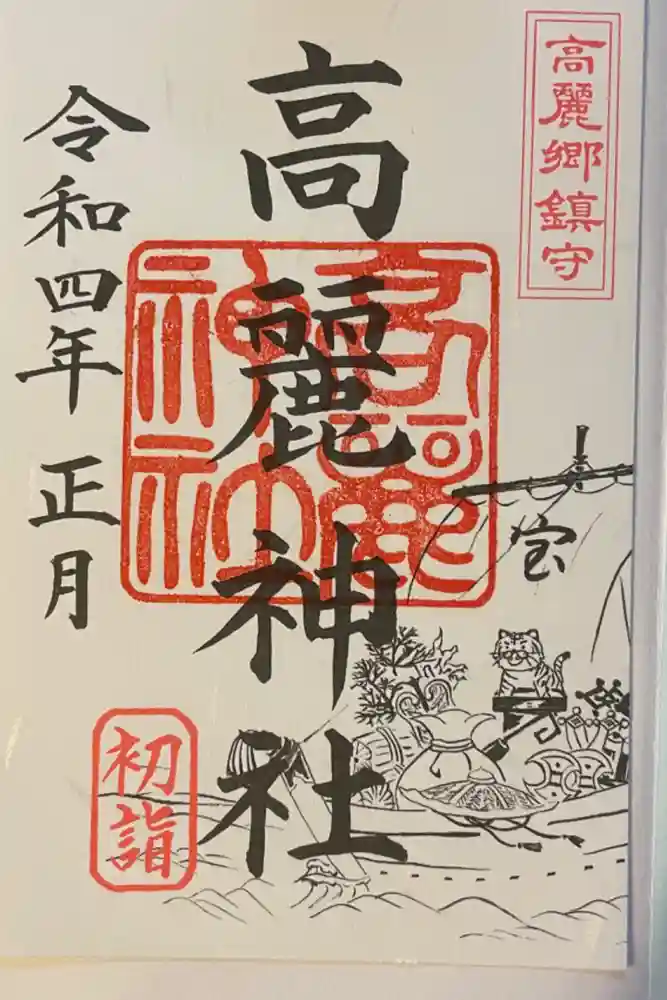 高麗郷鎮守
高麗神社
高麗
神社
宝
令和四年 正月
初詣